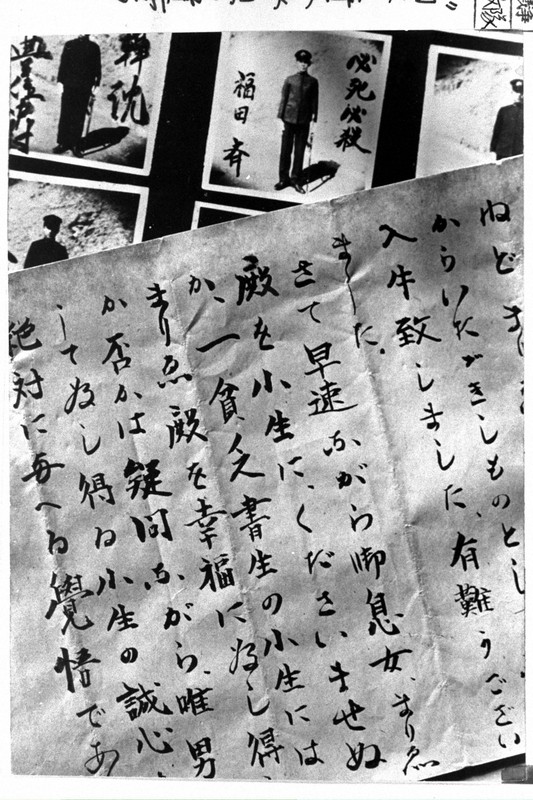 必死必殺
福田斉
からいただきしものとし
入手致しました、有難うござい
ました。
さて早速ながら御息女、まりゑ
殿を小生に、くださいませぬ
か、一貧乏書生の小生には
まりゑ殿を幸福に為し得、
か否かは疑問ながら、唯男
して為し得る小生の誠心、
絶対に与へる覺悟であ